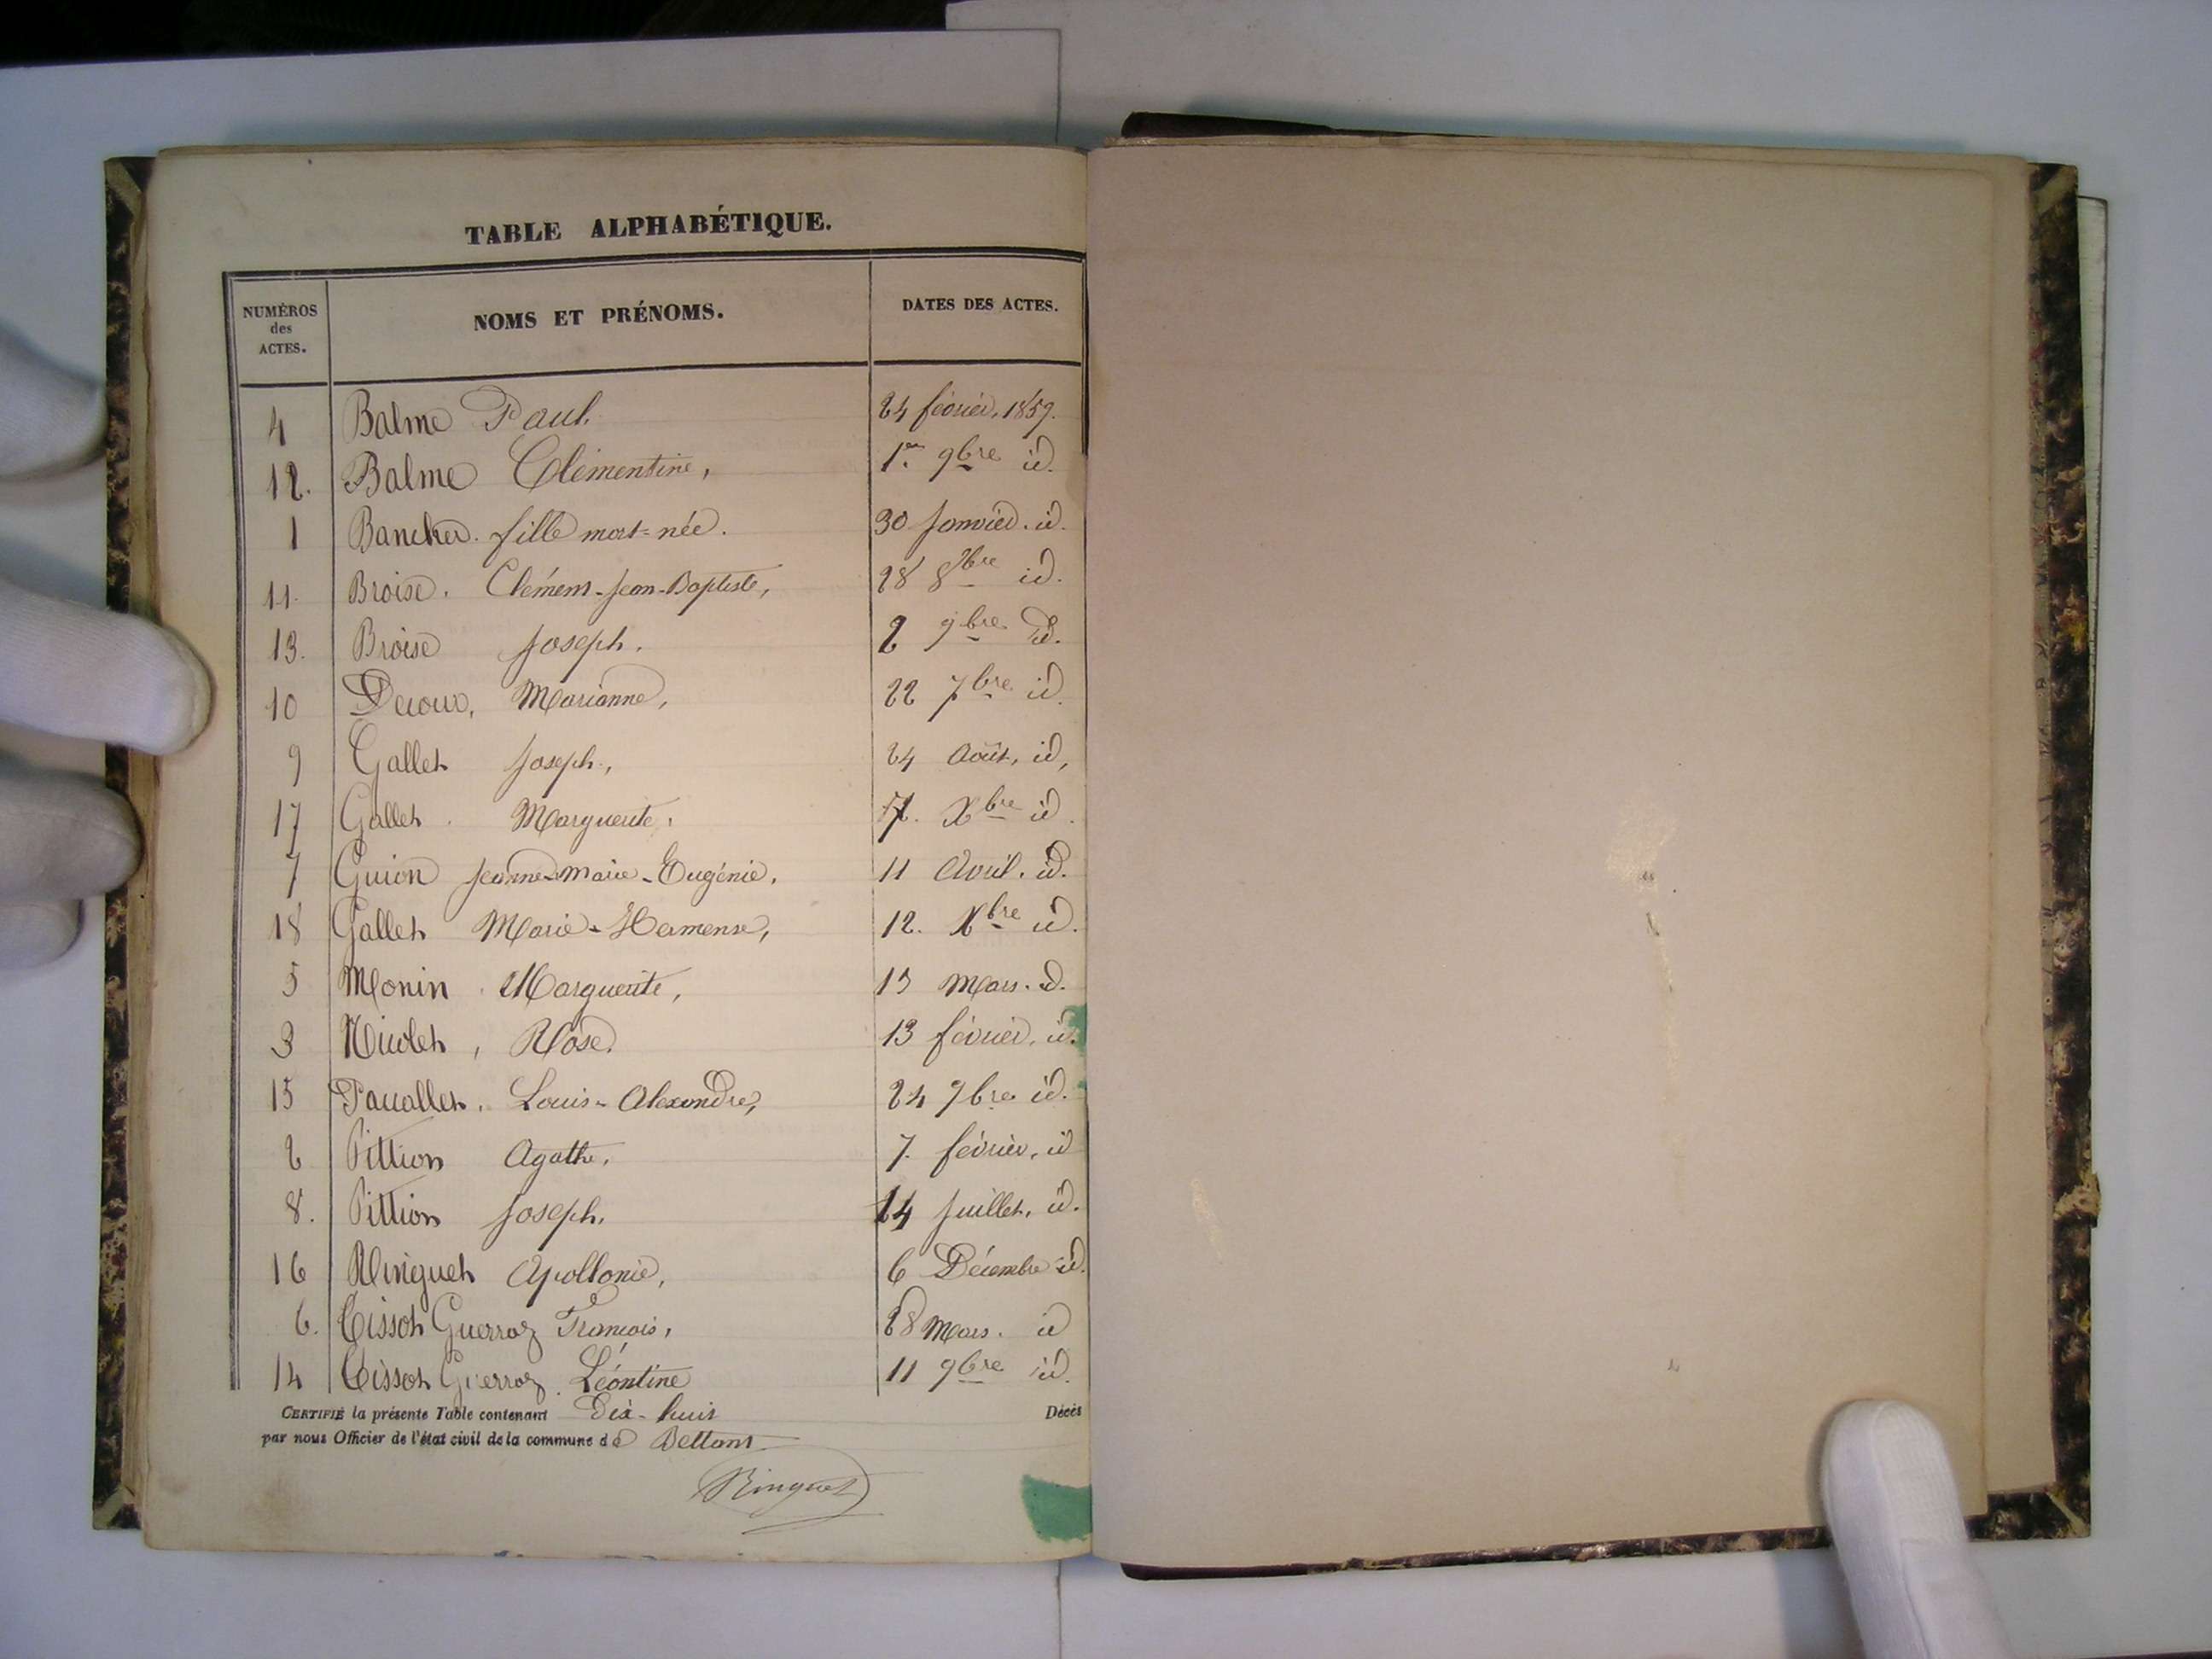 TABLE ALPHABÉTIQUE.
NUMÉROS des ACTES. NOMS ET PRÉNOMS. DATES DES ACTES.
4 Balme Paul. 24 février, 1859.
12. Balme Clémentine, 1er 9bre id.
1 Bancker. fille mort-née. 30 Janvier. id.
11. Broise. Clément-Jean-Baptiste, 28 8bre id.
13. Broise Joseph. 2 9bre id.
10 Decoux, Marianne, 22 7bre id.
9 Gallet Joseph, 24 Août, id,
17 Gallet. Marguerite, Xbre id.
7 Guion Jeanne-marie-Eugénie. 11 Avril. id.
18 Gallet Marie-Hermense, 12. Xbre id.
5 Monin. Marguerite, 13 Mars. id.
3 Nicolet, Rose. 13 février, id.
15 Pacallet. Louis-Alexandre, 24 9bre id.
2 Pittion Agathe, 7. février, id
8. Pittion Joseph. 14 Juillet, id.
16 Ringuet Apollonie, 6 Décembre id.
6. Tissot Guerraz François, 28 Mars. id
14 Tissot Guerraz. Léontine 11 9bre id.
CERTIFIÉ la présente Table contenant Dix-huit Décès
par nous Officier de l'état civil de la commune de Bettons
Ringuet